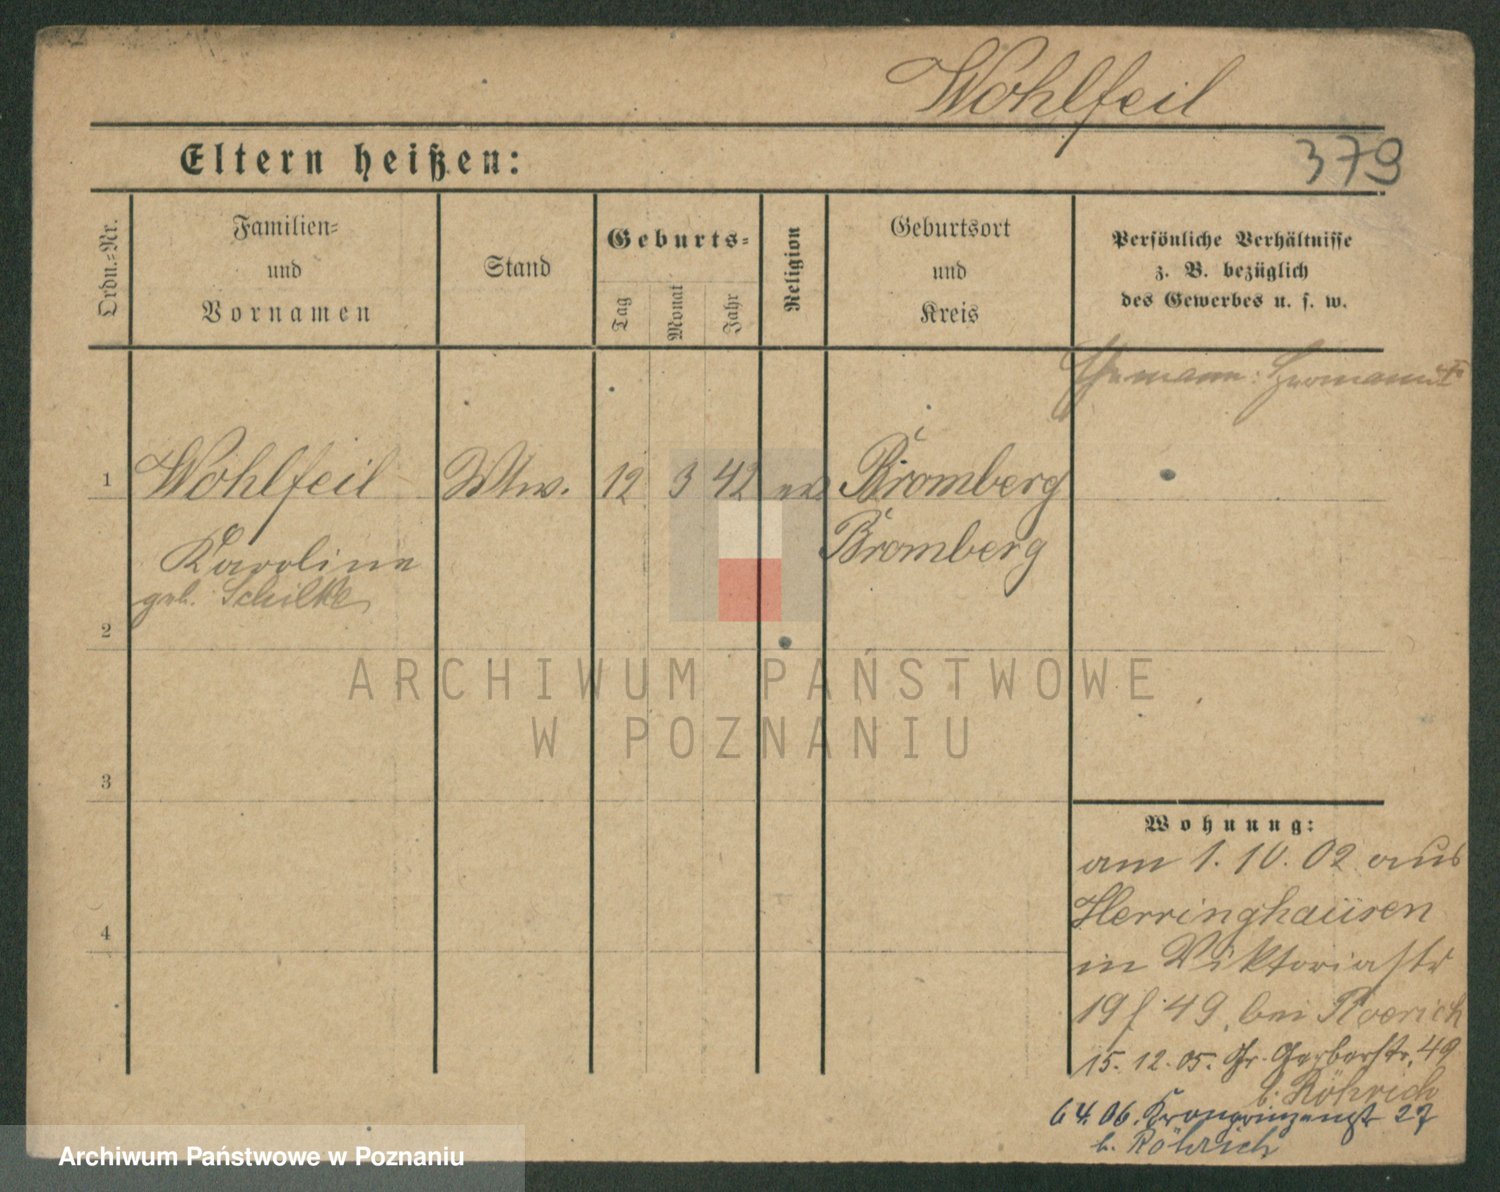 Wohlfeil
Eltern heißen:
379
Ordn.-Nr.
Familien-
und
Vornamen
Stand
Geburts-
Tag
Monat
Jahr
Religion
Geburtsort
und
Kreis
Persönliche Verhältnisse
z. B. bezüglich
des Gewerbes u. s. w.
Ehemann: Hermann †
1 Wohlfeil Wtw. 12 3 42 ev Bromberg
Karoline Bromberg
geb. Schilke
2
3
4
ARCHIWUM PAŃSTWOWE
W POZNANIU
Wohnung:
am 1. 10. 02 aus
Herringhausen
in Viktoriastr
19 f. 49, bei Roerich
15. 12. 05. Gr. Gerberstr. 49
b. Röhrich
6 4. 06. Kronprinzenstr 27
b. Röhrich
Archiwum Państwowe w Poznaniu